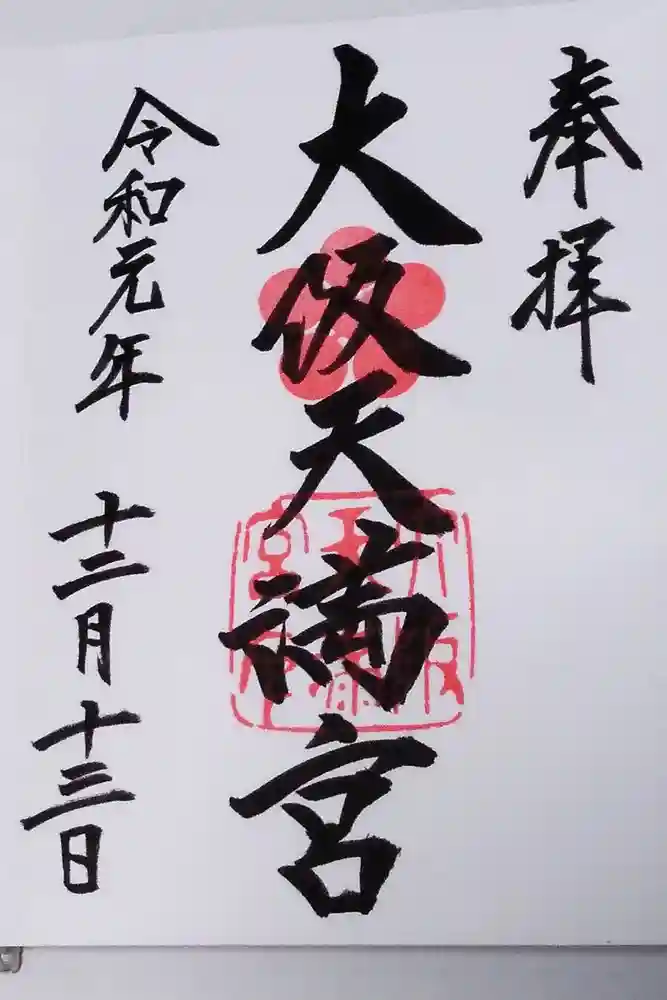 奉拝
大阪天満宮
令和元年 十二月 十三日